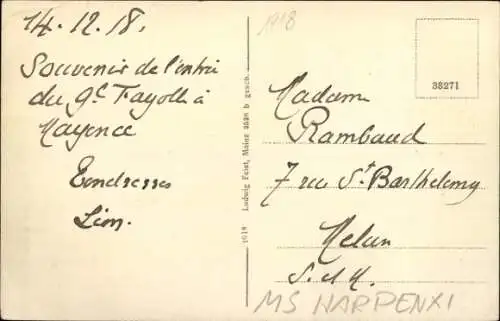 14.12.18.
Souvenir de l'entrée
du gᵉˡ Fayolle à
Mayence
Tendresses
Léon.
1918 Ludwig Feist, Mainz 3528 b gesch.
1918
38271
Madame
Rambaud
7 rue St Barthelemy
Melun
S. et M.
MS HARPENXI